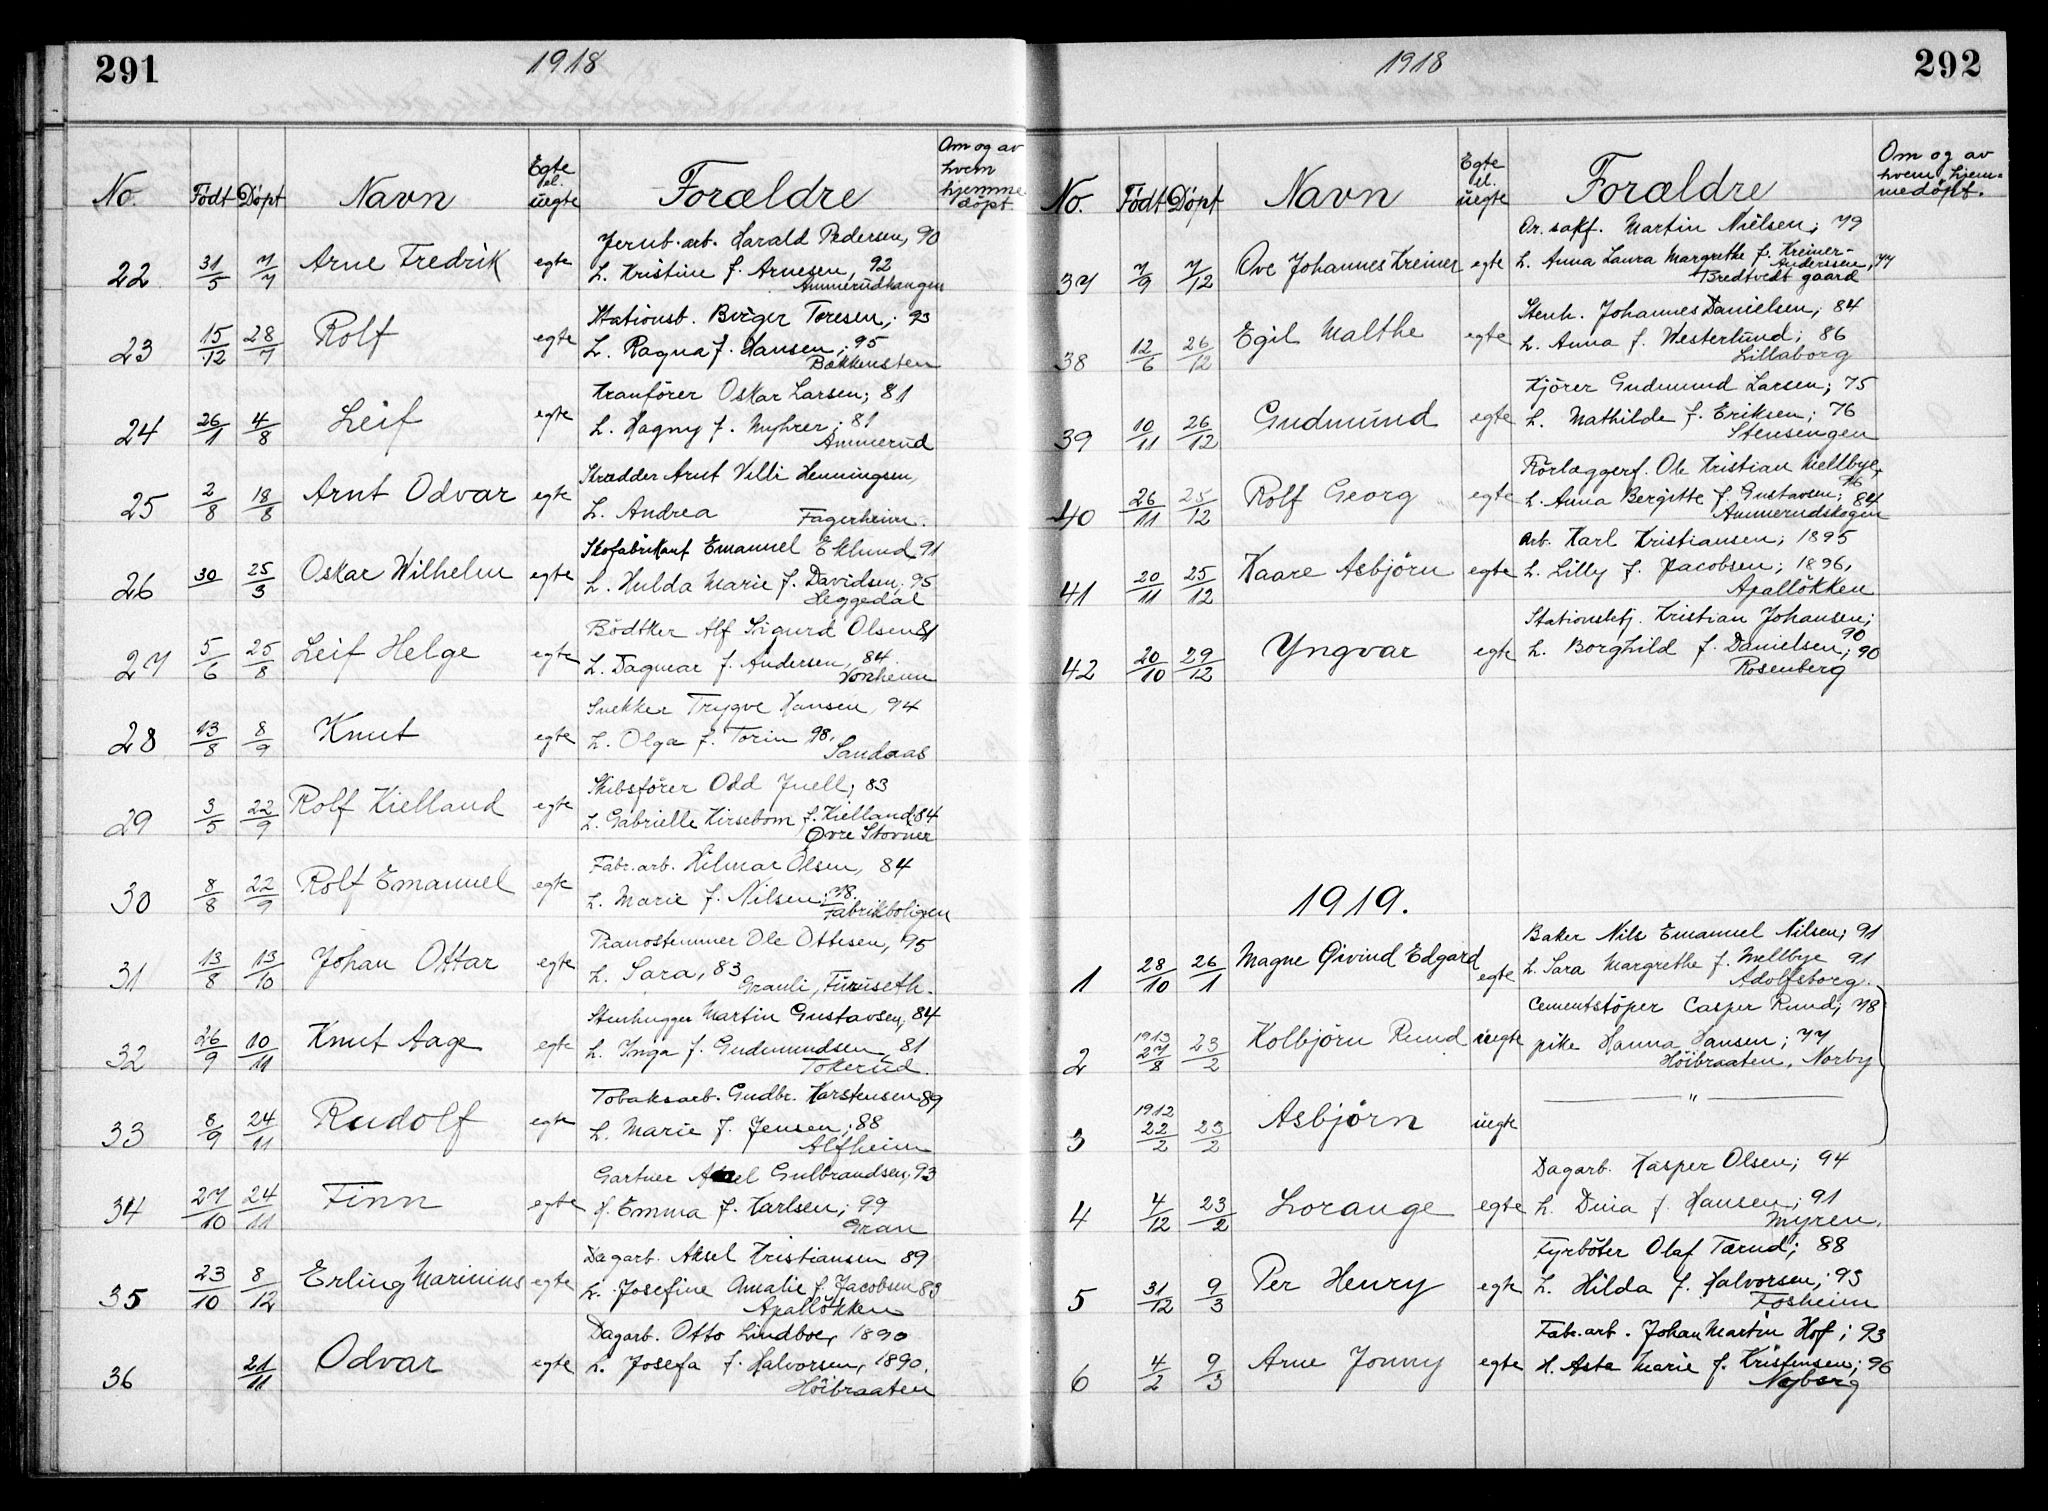 291
1918
No. Født Döpt Navn Egte el. uegte Forældre Om og av hvem hjemmedöpt
22 31/5 7/7 Arne Fredrik egte Jernb. arb. Harald Pedersen, 90
L. Kristine f. Arnesen, 92
Ammerudhaugen
23 15/12 28/7 Rolf egte Stationsb. Birger Toresen; 93
L. Ragna f. Hansen; 95
Bakkensten
24 26/1 4/8 Leif egte Kranförer Oskar Larsen; 81
L. Hagny f. Myhrer; 81
Ammerud
25 2/8 18/8 Arnt Odvar egte Skrædder Arnt Villi Henningsen,
L. Andrea
Fagerheim.
26 30 25/3 Oskar Wilhelm egte Skofabrikant Emanuel Eklund 91
L. Hulda Marie f. Davidsen, 95
Heggedal
27 5/6 25/8 Leif Helge egte Bödtker Alf Sigurd Olsen 81
L. Dagmar f. Andersen, 84.
Vonheim
28 13/8 8/9 Knut egte Snekker Trygve Hansen, 94
L. Olga f. Torin 98,
Sandaas
29 3/5 22/9 Rolf Kielland egte Skibsförer Odd Juell; 83
L. Gabrielle Kirsebom f. Kielland 84
Øvre Stovner
30 8/8 22/9 Rolf Emanuel egte Fabr. arb. Hilmar Olsen, 84
L. Marie f. Nilsen; 78
Fabrikboligen
31 13/8 13/10 Johan Ottar egte Pianostemmer Ole Ottesen, 95
L. Sara, 83
Granli, Furuseth.
32 26/9 10/11 Knut Aage egte Stenhugger Martin Gustavsen; 84
L. Inga f. Gudmundsen, 81
Tokerud.
33 8/9 24/11 Rudolf egte Tobaksarb. Gudbr. Karstensen 89
L. Marie f. Jensen; 88
Alfheim
34 27/10 24/11 Finn egte Gartner Axel Gulbrandsen, 93
H. Emma f. Karlsen; 99
Gran
35 23/10 8/12 Erling Marinius egte Dagarb. Aksel Kristiansen 89
L. Josefine Amalie f. Jacobsen 83
Apallökken
36 21/11 Odvar egte Dagarb. Otto Lindboe, 1890
L. Josefa f. Halvorsen, 1890,
Höibraaten
292
1918
No. Födt Döpt Navn Egte el. uegte Forældre Om og av hvem hjemmedöpt.
37 7/9 7/12 Ove Johannes Kreiner egte Or. sakf. Martin Nielsen; 79
L. Anna Laura Margrethe f. Kreiner-Anderssen, 77
Bredtvedt gaard
38 12/6 26/12 Egil Malthe egte Stenh. Johannes Danielsen; 84
L. Anna f. Westerlund; 86
Lillaborg
39 10/11 26/12 Gudmund egte Kjörer Gudmund Larsen; 75
L. Mathilde f. Eriksen; 76
Stensengen
40 26/11 25/12 Rolf Georg egte Rörlæggerf. Ole Kristian Mellbye, 76
L. Anna Bergitte f. Gustavsen; 84
Ammerudskogen
41 20/11 25/12 Kaare Asbjörn egte Arb. Karl Kristiansen; 1895
L. Lilly f. Jacobsen; 1896,
Apallökken
42 20/10 29/12 Yngvar egte Stationsbtj. Kristian Johansen; 90
L. Borghild f. Danielsen; 90
Rosenberg
1919.
1 28/10 26/1 Magne Øivind Edgard egte Baker Nils Emanuel Nilsen; 91
L. Sara Margrethe f. Mellbye 91
Adolfsborg.
2 1913 27/8 23/2 Kolbjörn Ruud uegte Cementstöper Casper Ruud; 78
pike Hanna Hansen; 77
Höibraaten, Norby
3 1912 22/2 23/2 Asbjörn uegte — " —
4 4/12 23/2 Lorange egte Dagarb. Kasper Olsen; 94
L. Dina f. Hansen; 91
Myren.
5 31/12 9/3 Per Henry egte Fyrböter Olaf Tarud; 88
L. Hilda f. Halvorsen; 93
Fosheim
6 4/2 9/3 Arne Jonny egte Fabr. arb. Johan Martin Hof; 93
H. Asta Marie f. Kristensen; 96
Nyborg